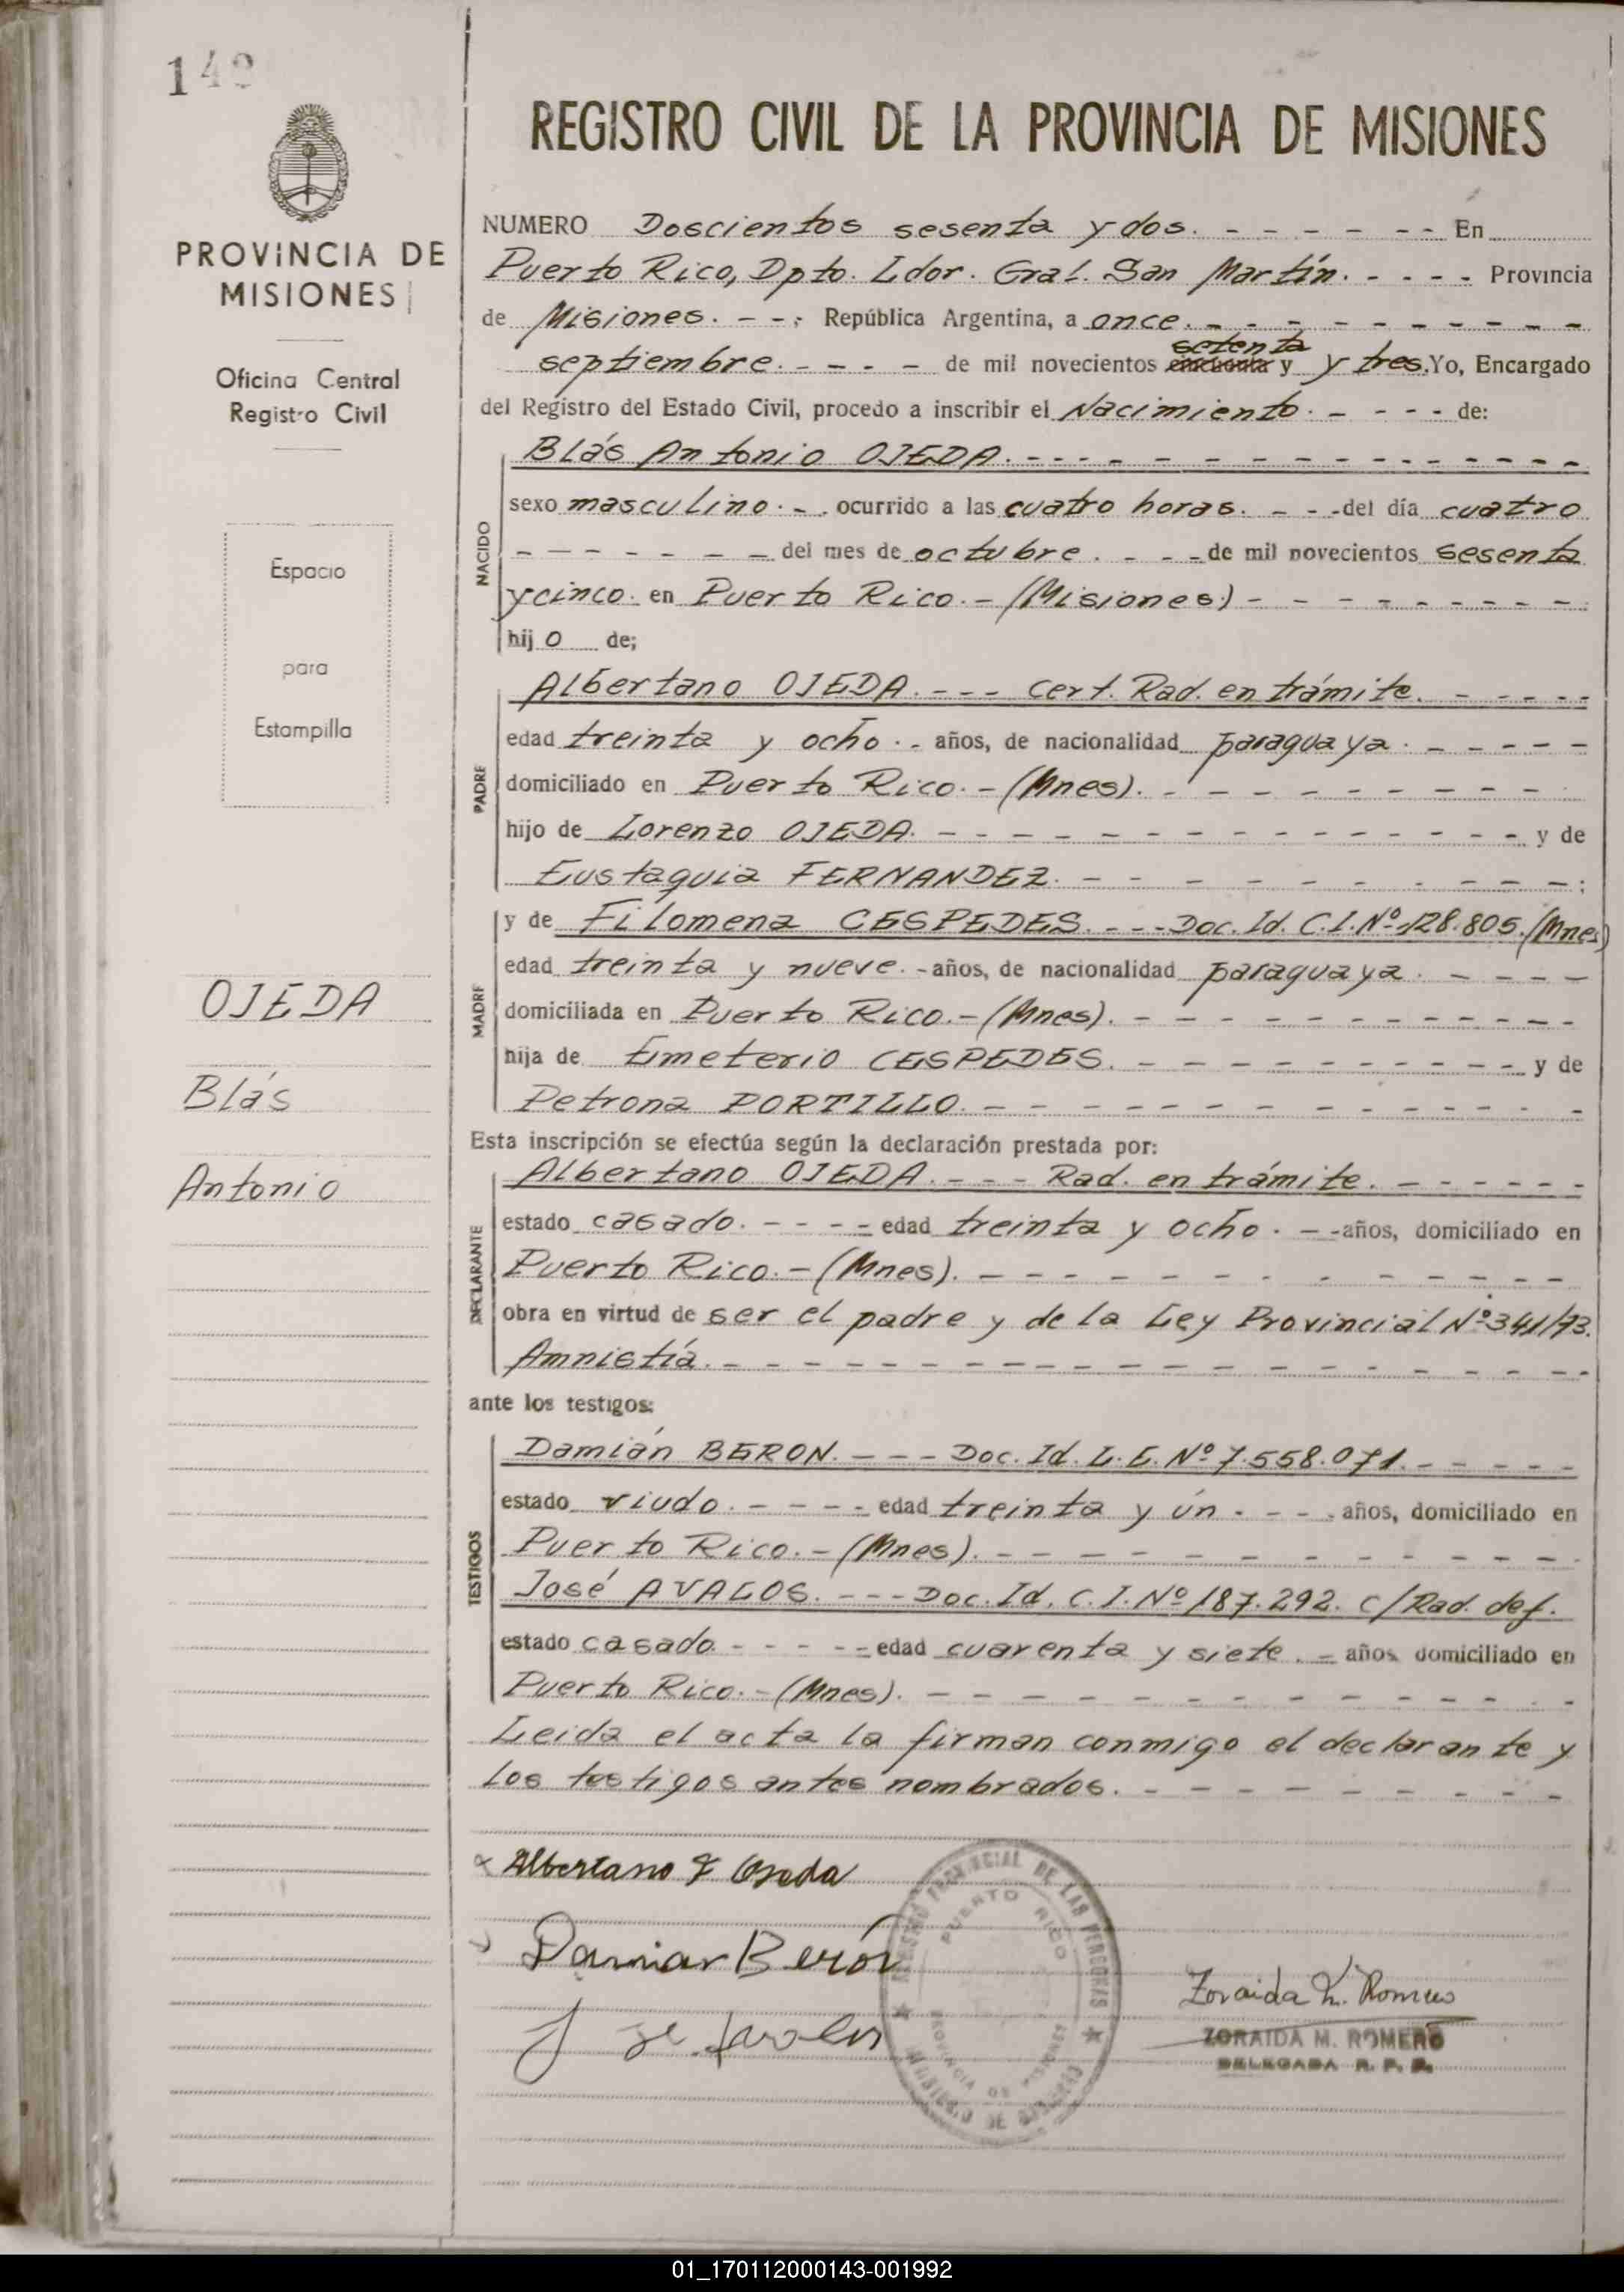 149
PROVINCIA DE
MISIONES
Oficina Central
Registro Civil
Espacio
para
Estampilla
OJEDA
Blás
Antonio
REGISTRO CIVIL DE LA PROVINCIA DE MISIONES
NUMERO Doscientos sesenta y dos. - - - - - - En
Puerto Rico, Dpto. Ldor. Gral. San Martín. - - - - Provincia
de Misiones. - - - República Argentina, a once. - - - - - - - - -
setenta
septiembre. - - - - de mil novecientos cincuenta y y tres. Yo, Encargado
del Registro del Estado Civil, procedo a inscribir el Nacimiento. - - - - de:
NACIDO
Blás Antonio OJEDA. - - - - - - - - - - - - - - - -
sexo masculino. - . ocurrido a las cuatro horas. - - - del día cuatro
- - - - - - - del mes de octubre. - - - de mil novecientos sesenta
y cinco. en Puerto Rico. - (Misiones) - - - - - - - - -
hijo de;
PADRE
Albertano OJEDA. - - - Cert. Rad. en trámite. - - - - -
edad treinta y ocho. - años, de nacionalidad paraguaya. - - - - -
domiciliado en Puerto Rico. - (Mnes). - - - - - - - - - -
hijo de Lorenzo OJEDA. - - - - - - - - - - - - - - y de
Eustaquia FERNANDEZ. - - - - - - - - - - - ;
MADRE
y de Filomena CESPEDES. - - - Doc. Id. C.I. Nº 128.805. (Mnes)
edad treinta y nueve. - años, de nacionalidad paraguaya. - - - -
domiciliada en Puerto Rico. - (Mnes). - - - - - - - - - - -
hija de Emeterio CESPEDES. - - - - - - - - - - y de
Petrona PORTILLO. - - - - - - - - - - - - -
Esta inscripción se efectúa según la declaración prestada por:
DECLARANTE
Albertano OJEDA. - - - Rad. en trámite. - - - - - -
estado casado. - - - - edad treinta y ocho. - - años, domiciliado en
Puerto Rico. - (Mnes). - - - - - - - - - - - - -
obra en virtud de ser el padre y de la Ley Provincial Nº 341/73.
Amnistía. - - - - - - - - - - - - - - - - - -
ante los testigos:
TESTIGOS
Damián BERON. - - - Doc. Id. L.E. Nº 7.558.071. - - - - -
estado viudo. - - - - edad treinta y ún. - - - años, domiciliado en
Puerto Rico. - (Mnes). - - - - - - - - - - - -
José AVALOS. - - - Doc. Id. C.I. Nº 187.292. C/Rad. def.
estado casado - - - - - edad cuarenta y siete. - años domiciliado en
Puerto Rico. - (Mnes). - - - - - - - - - - - - -
Leida el acta la firman conmigo el declarante y
los testigos antes nombrados. - - - - - - - - -
Albertano F Ojeda
Damian Berón
REGISTRO PROVINCIAL DE LAS PERSONAS
PUERTO RICO
PROVINCIA DE MISIONES
MINISTERIO DE GOBIERNO
Zoraida M. Romero
ZORAIDA M. ROMERO
DELEGADA R. P. P.
01_170112000143-001992